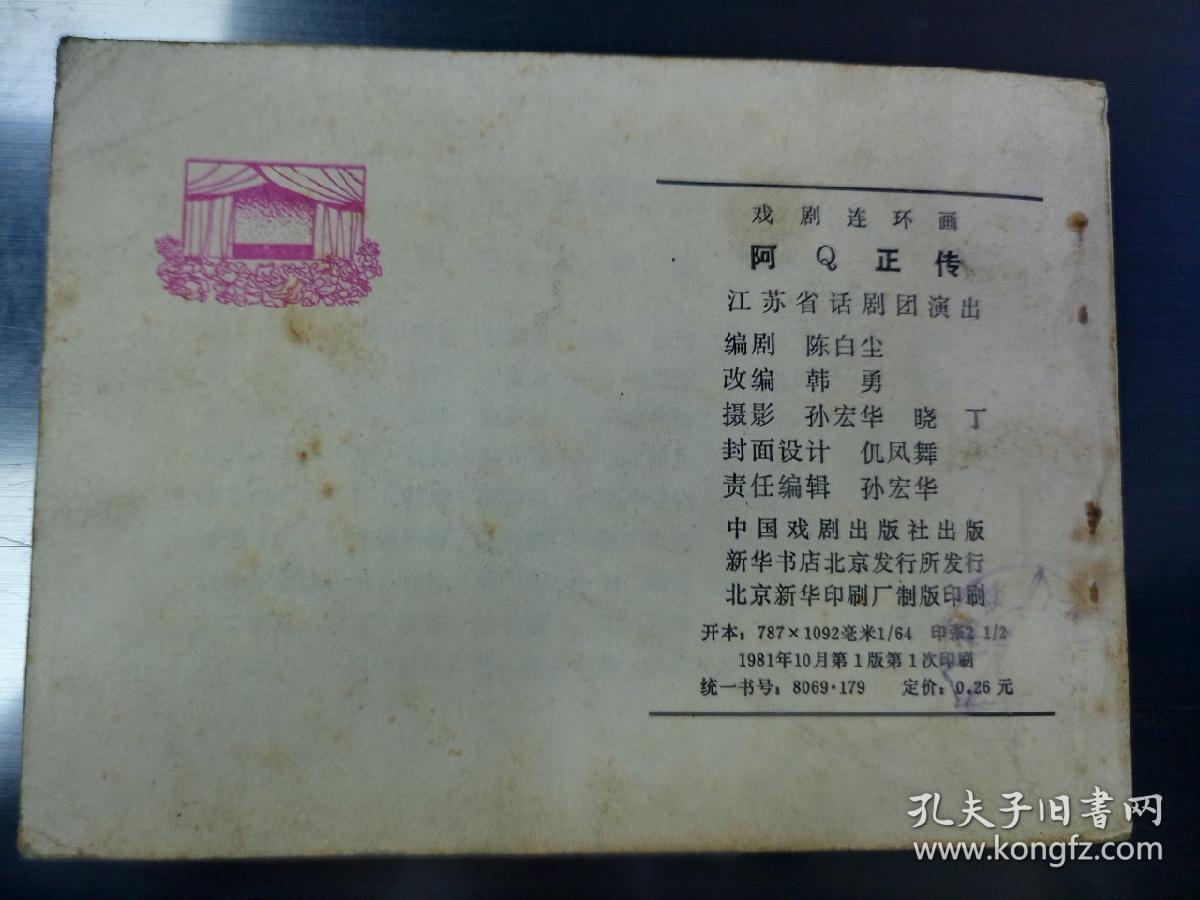 戏剧连环画
阿Q正传
江苏省话剧团演出
编剧 陈白尘
改编 韩勇
摄影 孙宏华 晓丁
封面设计 仉凤舞
责任编辑 孙宏华
中国戏剧出版社出版
新华书店北京发行所发行
北京新华印刷厂制版印刷
开本：787×1092毫米1/64 印张2 1/2
1981年10月第1版第1次印刷
统一书号：8069·179 定价：0.26元
孔夫子旧書网
www.kongfz.com